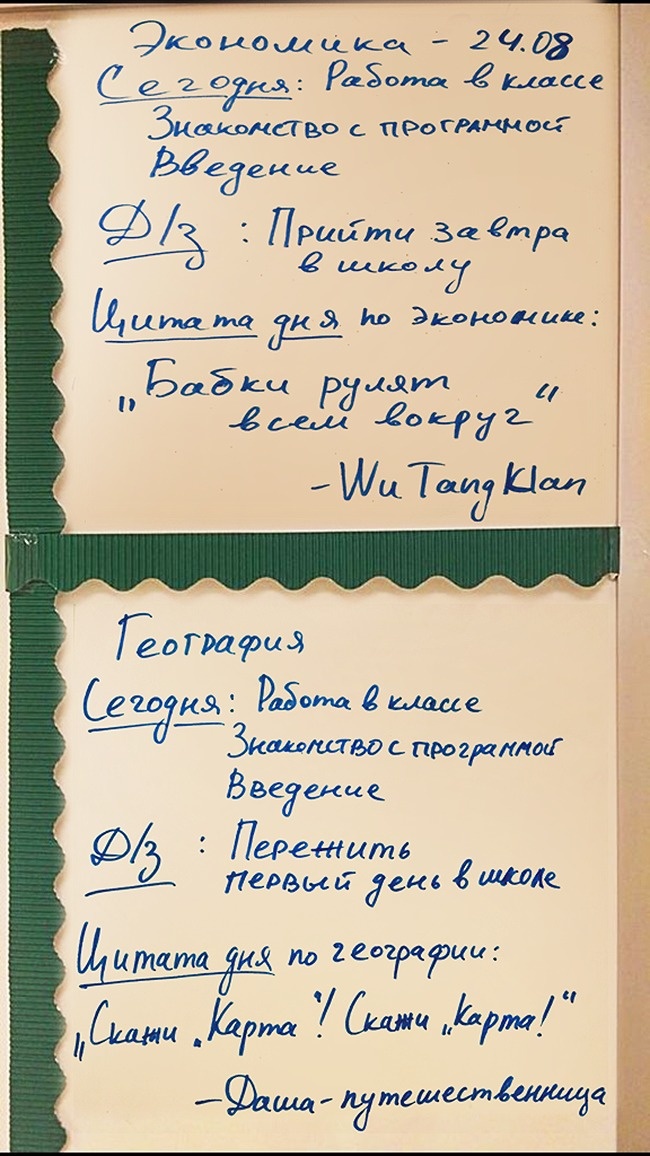 Экономика - 24.08
Сегодня: Работа в классе
Знакомство с программой
Введение
Д/з : Прийти завтра
в школу
Цитата дня по экономике:
„Бабки рулят
всем вокруг“
- Wu Tang Klan
География
Сегодня: Работа в классе
Знакомство с программой
Введение
Д/з : Пережить
первый день в школе
Цитата дня по географии:
„Скажи „Карта“! Скажи „Карта!“
- Даша-путешественница